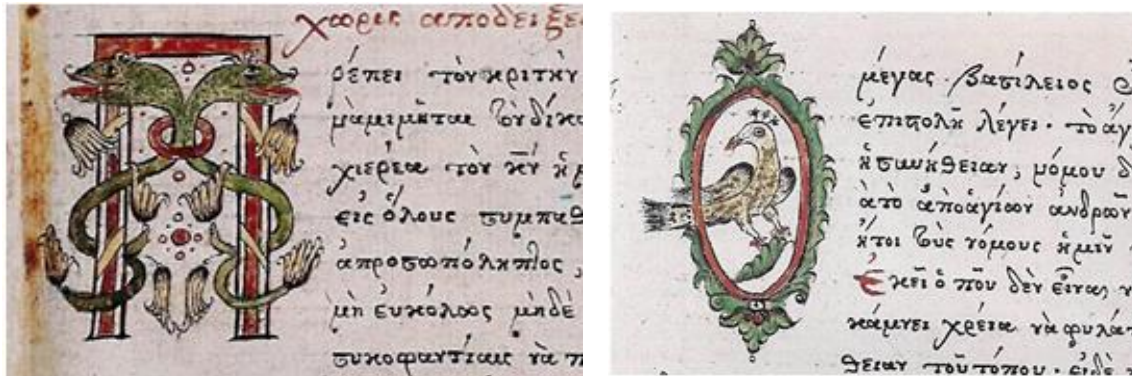 χωρὶς ἀποδείξε
ρέπει τὸν κριτὴν
νὰ μιμῆται τὸν δίκα
χιερέα τὸν χν ἡ
εἰς ὅλους συμπαθ
ἀπροσωπόληπτος,
μὴ εὐκόλως μηδὲ
συκοφαντίαις νὰ π
μέγας βασίλειος
ἐπιστολῇ λέγει· τὸ ἀγ
ἡ συνήθειαν, νόμου δ
ἀπὸ ἁγίων ἀνδρῶν
ἤτοι τοὺς νόμους ἡμῖν
Ἐκεῖ ὁ ποῦ δὲν εἶναι ν
κάμνει χρεία νὰ φυλά
θειαν τοῦ τόπου· εἰδὲ